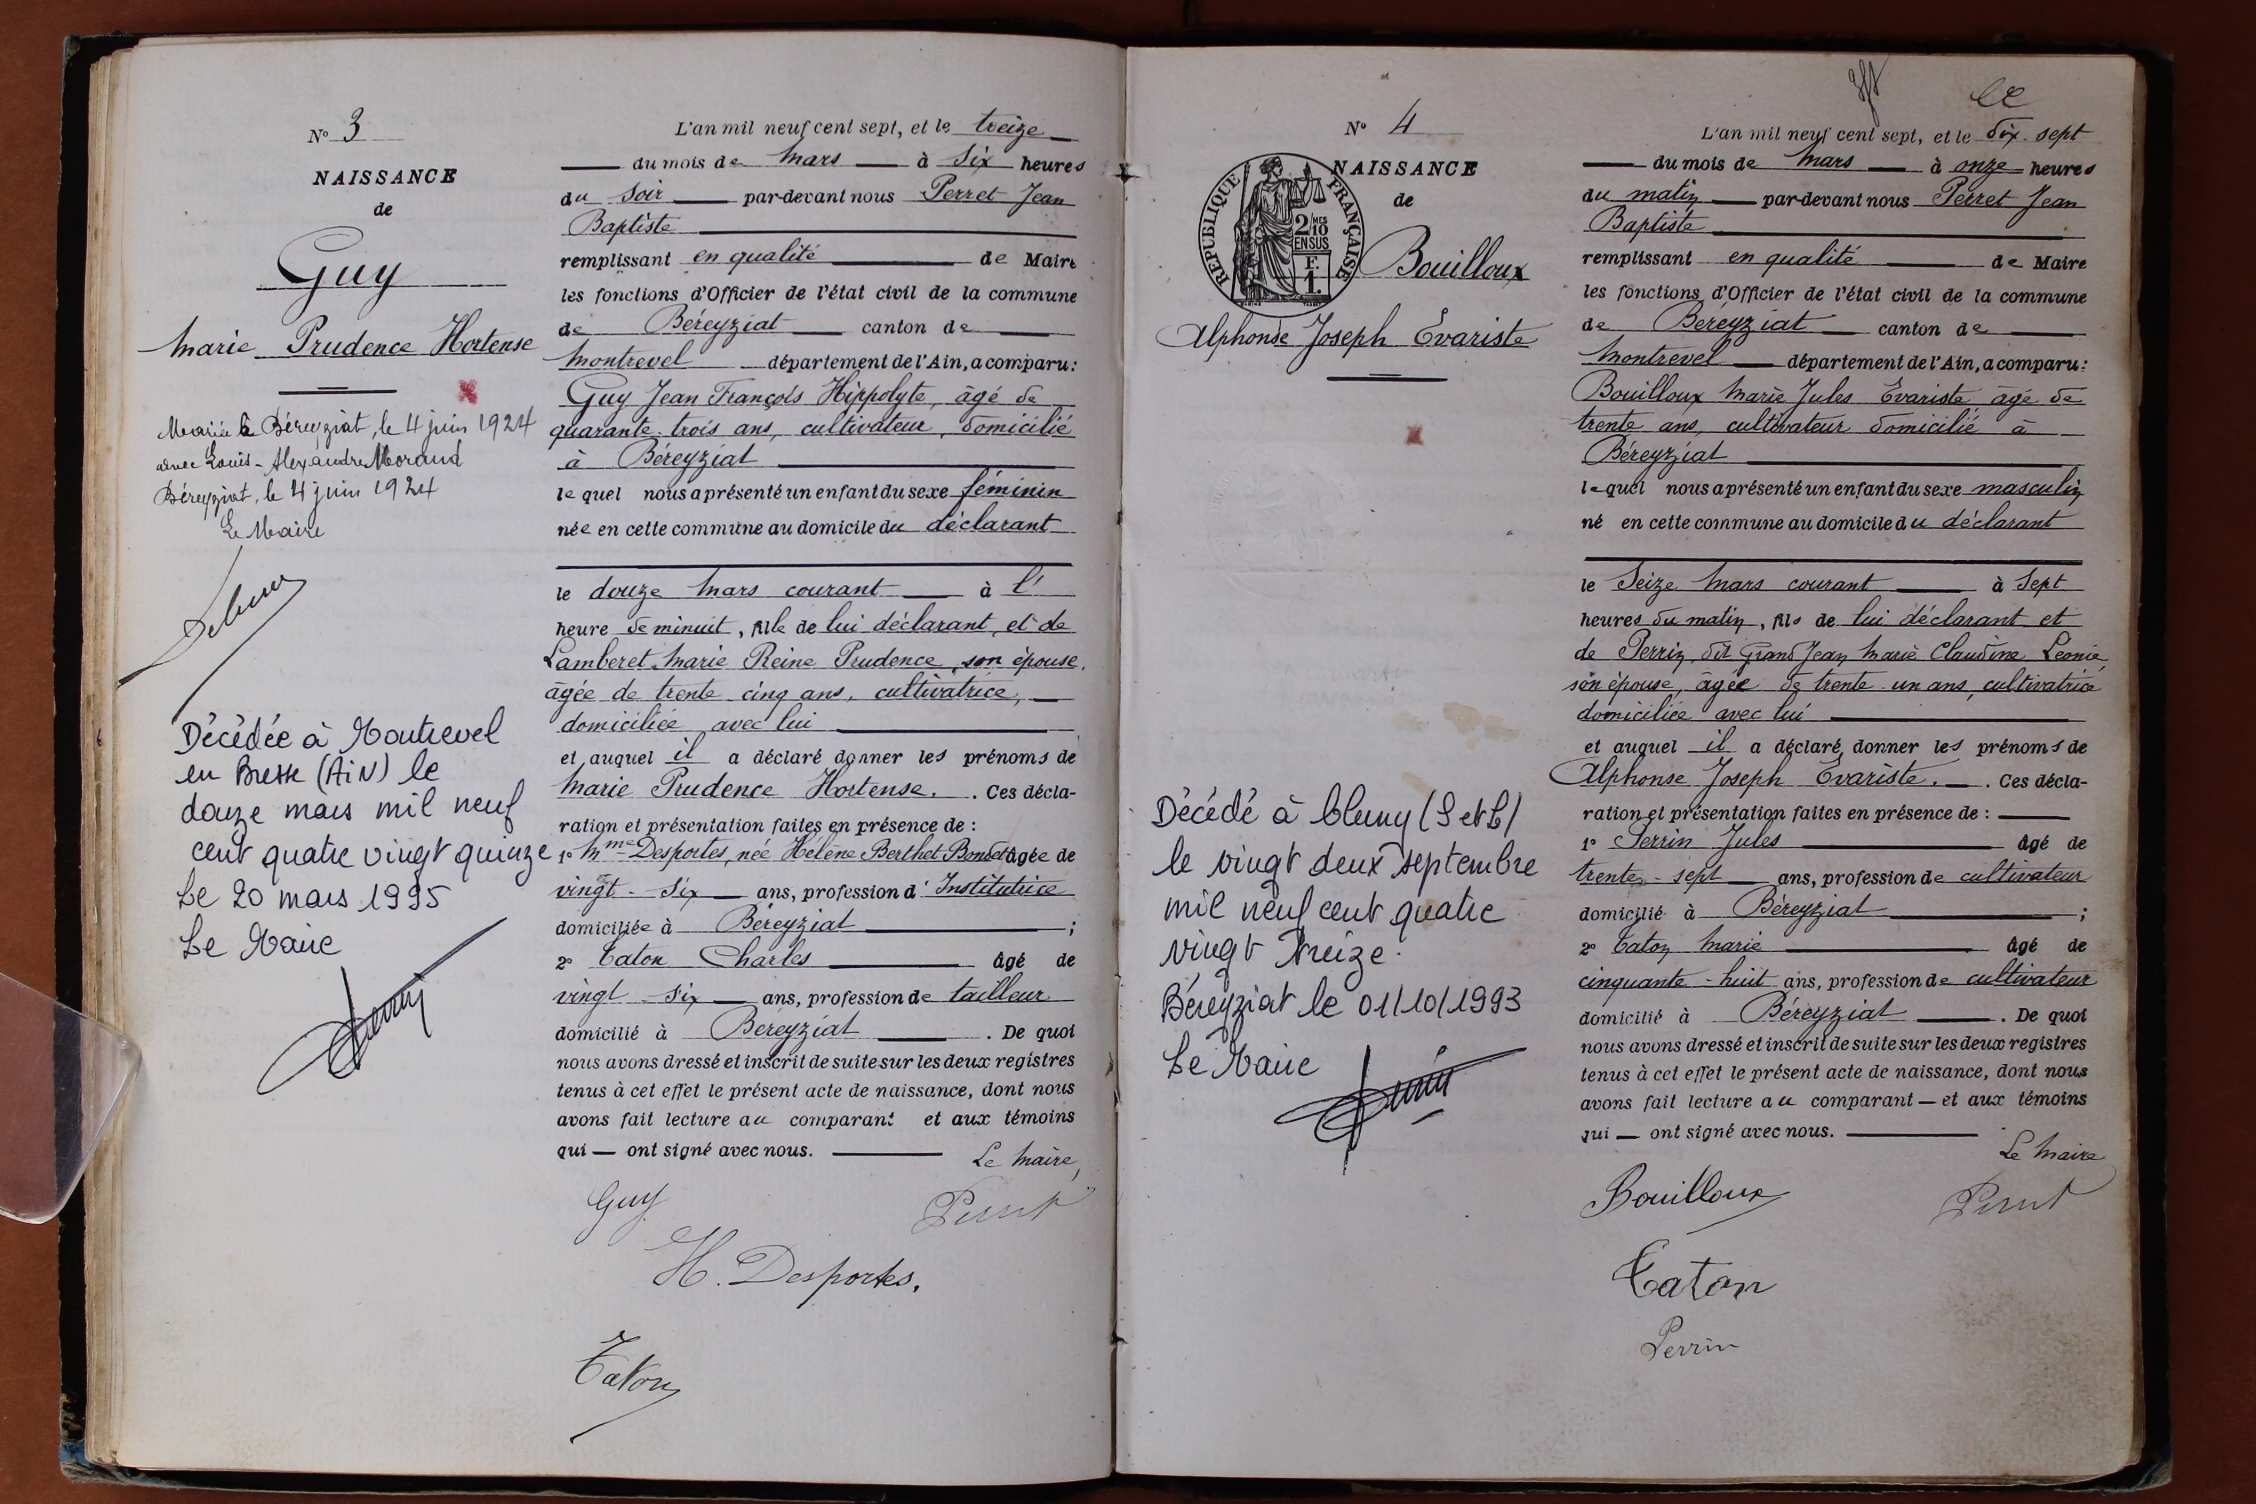 N° 3
NAISSANCE
de
Guy
Marie Prudence Hortense
Mariée à Béreyziat, le 4 juin 1924
avec Louis-Alexandre Morand
Béreyziat, le 4 juin 1924
Le Maire
Décédée à Montrevel
en Bresse (AiN) le
douze mars mil neuf
cent quatre vingt quinze
Le 20 mars 1995
Le Maire
L'an mil neuf cent sept, et le treize
du mois de Mars à Six heures
du Soir par-devant nous Perret Jean
Baptiste
remplissant en qualité de Maire
les fonctions d'Officier de l'état civil de la commune
de Béreyziat canton de
Montrevel département de l'Ain, a comparu :
Guy Jean François Hippolyte, âgé de
quarante-trois ans, cultivateur, domicilié
à Béreyziat
lequel nous a présenté un enfant du sexe féminin
née en cette commune au domicile du déclarant
le douze Mars courant à l'
heure de minuit, fille de lui déclarant, et de
Lamberet Marie Reine Prudence, son épouse,
âgée de trente cinq ans, cultivatrice,
domiciliée avec lui
et auquel il a déclaré donner les prénoms de
Marie Prudence Hortense. . Ces décla-
ration et présentation faites en présence de :
1° Mme Desportes, née Hélène Berthet-Bondet âgée de
vingt-six ans, profession d'Institutrice
domiciliée à Béreyziat ;
2° Caton Charles âgé de
vingt-six ans, profession de tailleur
domicilié à Béreyziat . De quoi
nous avons dressé et inscrit de suite sur les deux registres
tenus à cet effet le présent acte de naissance, dont nous
avons fait lecture au comparant et aux témoins
qui — ont signé avec nous.
Le Maire,
Guy
Perret
H. Desportes.
Caton
N° 4
NAISSANCE
de
RÉPUBLIQUE FRANÇAISE
2/10
MES
EN SUS
F.
1.
Bouilloux
Alphonse Joseph Évariste
Décédé à Cluny (S et L)
le vingt deux septembre
mil neuf cent quatre
vingt treize.
Béreyziat le 01/10/1993
Le Maire
L'an mil neuf cent sept, et le dix-sept
du mois de Mars à onze heures
du matin par-devant nous Perret Jean
Baptiste
remplissant en qualité de Maire
les fonctions d'Officier de l'état civil de la commune
de Bereyziat canton de
Montrevel département de l'Ain, a comparu :
Bouilloux Marie Jules Evariste âgé de
trente ans, cultivateur domicilié à
Béreyziat
lequel nous a présenté un enfant du sexe masculin
né en cette commune au domicile du déclarant
le Seize Mars courant à Sept
heures du matin, fils de lui déclarant et
de Perrin dit Grand Jean Marie Claudine Léonie,
son épouse, âgée de trente-un ans, cultivatrice
domiciliée avec lui
et auquel il a déclaré donner les prénoms de
Alphonse Joseph Évariste. . Ces décla-
ration et présentation faites en présence de :
1° Perrin Jules âgé de
trente-sept ans, profession de cultivateur
domicilié à Béreyziat ;
2° Caton Marie âgé de
cinquante-huit ans, profession de cultivateur
domicilié à Béreyziat . De quoi
nous avons dressé et inscrit de suite sur les deux registres
tenus à cet effet le présent acte de naissance, dont nous
avons fait lecture au comparant — et aux témoins
qui — ont signé avec nous.
Le Maire
Bouilloux
Perret
Caton
Perrin